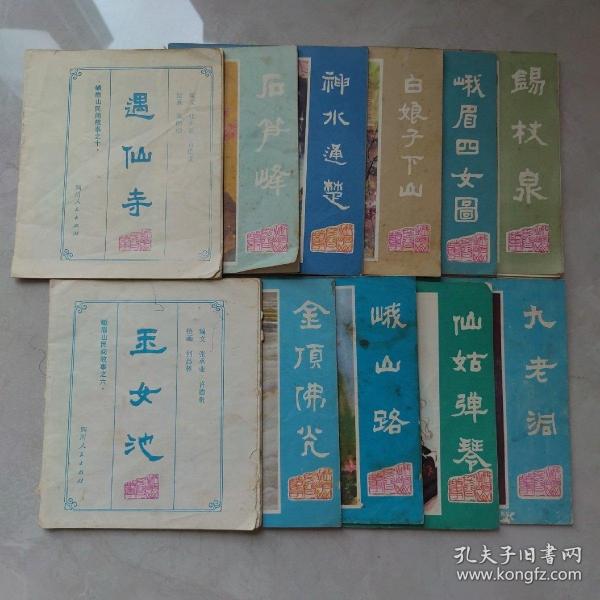 遇仙寺
峨眉山民间故事之十
四川人民出版社
石笋峰
神水通楚
白娘子下山
峨眉四女圖
錫杖泉
玉女池
峨眉山民间故事之六
编文 张承业
绘画
四川人民出版社
金頂佛光
峨山路
仙姑弹琴
九老洞
孔夫子旧书网
www.kongfz.com